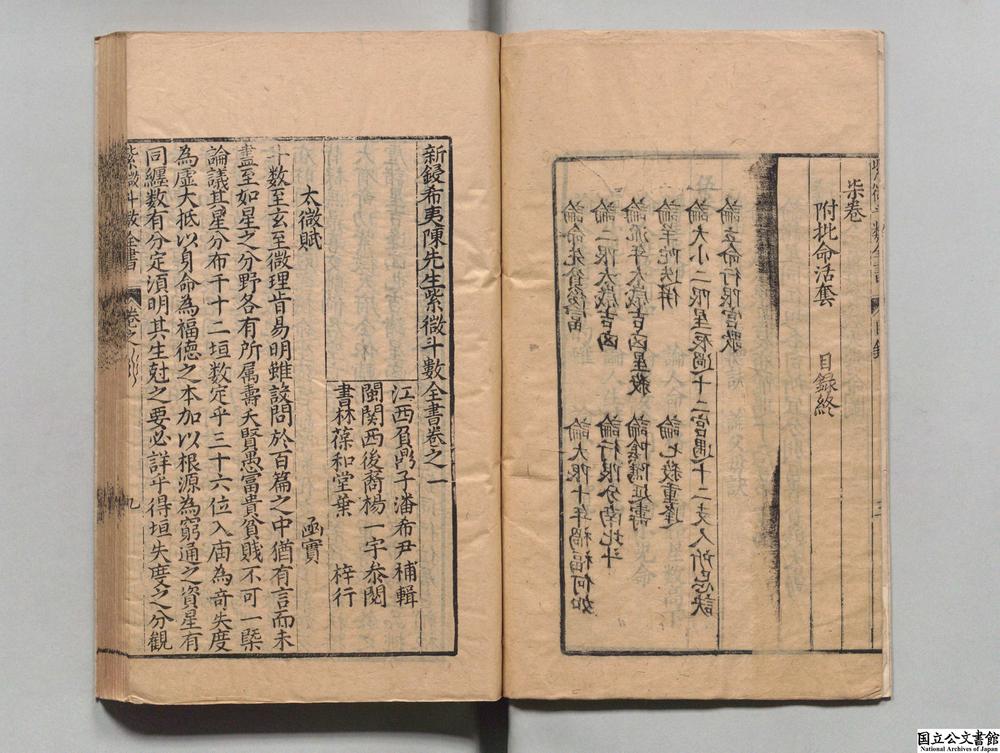 柒卷
附批命活套　目録終
論立命行限宮歌
論大小二限星辰過十二宮遇十二支人所忌訣
論羊陀迭併　論七殺重逢
論流年太歲吉凶星殺　論陰隲延壽
論二限太歲吉凶　論行限分南北斗
論命先貧後富　論大限十年禍福何如
新鋟希夷陳先生紫微斗數全書卷之一
江西負鼎子潘希尹補輯
閩関西後裔楊一宇叅閱
書林葆和堂葉　梓行
太微賦　函實
斗数至玄至微理肯易明雖設問於百篇之中猶有言而未
盡至如星之分野各有所属壽夭賢愚富貴貧賎不可一槩
論議其星分布于十二垣数定乎三十六位入庙為奇失度
為虚大抵以身命為福德之本加以根源為窮通之資星有
同纏数有分定湏明其生尅之要必詳乎得垣失度之分觀
紫微斗数全書　卷之一　九